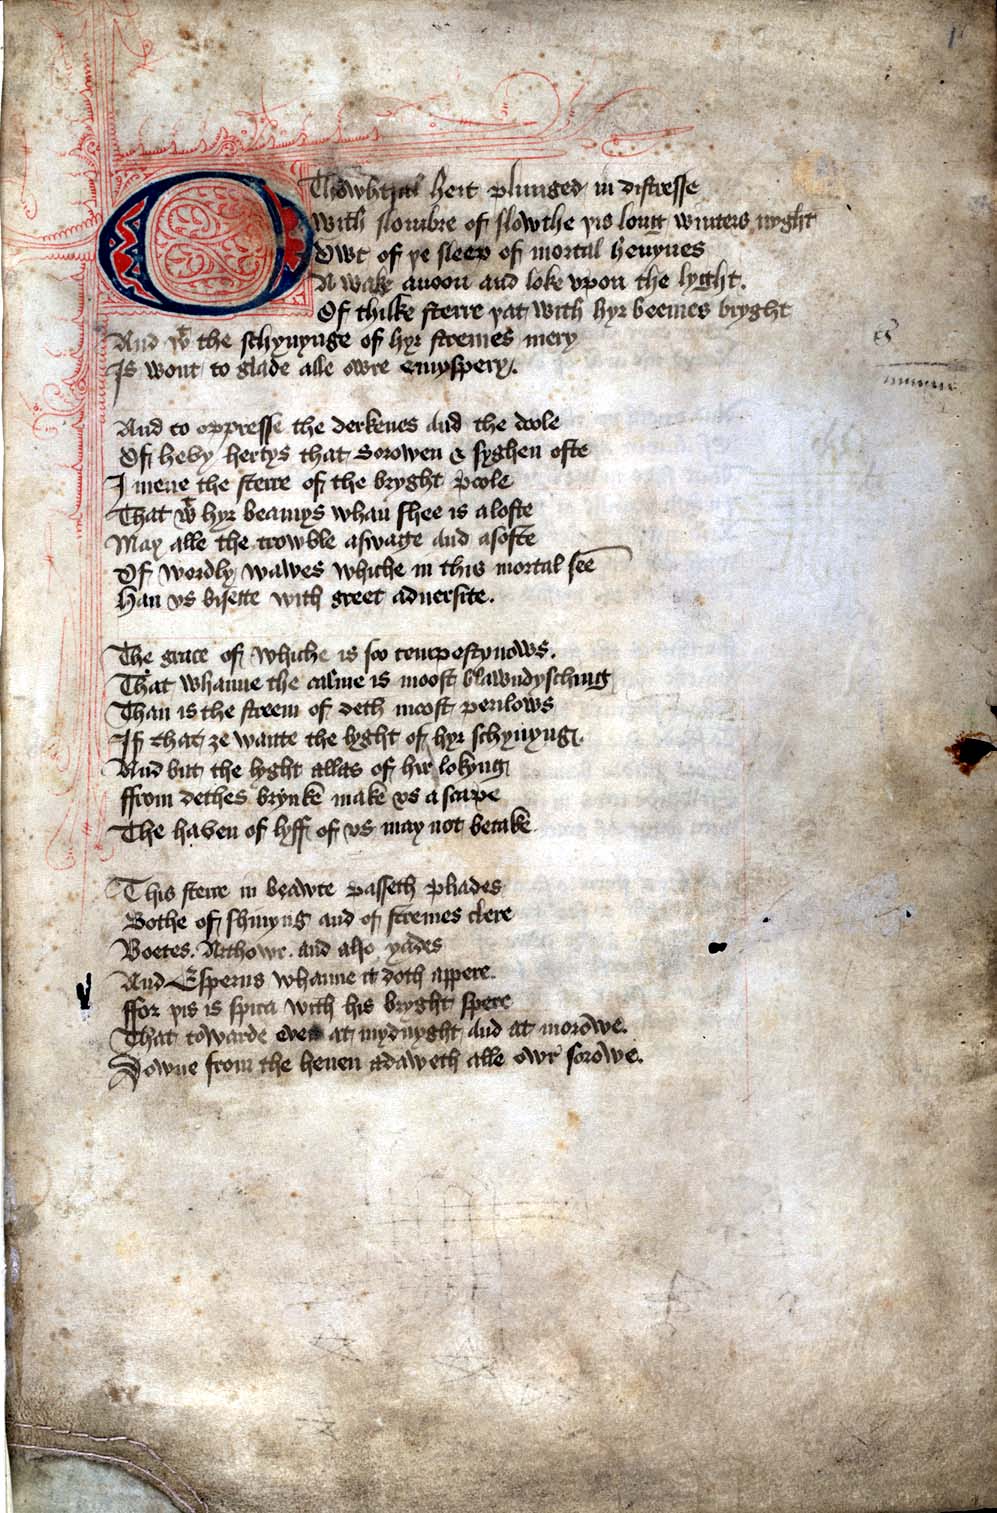 O Thowhtful hert plunged in distresse
With slombre of slowthe þis long winters nyght
Owt of þe sleep of mortal heuynes
A wake anoon and loke vpon the lyght.
Of thilke sterre þat with hyr beemes bryght
And wt the schynynge of hyr stremes mery
Is wont to glade alle owre emyspery.
And to oppresse the derkenes and the doole
Of hevy hertys that sorowen & syghen ofte
I mene the sterre of the bryght poole
That wt hyr beamys whan shee is alofte
May alle the trowble aswage and asofte
Of wordly wawes whiche in this mortal see
Han vs bysette with greet aduersite.
The grace of whiche is soo tempestyuows.
That whanne the calme is moost blawndysching
Than is the streem of deth moost perilows
If that ȝe wante the lyght of hyr schynyng.
And but the lyght allas of hir lokyng
ffrom dethes brynke make vs a scape
The haven of lyff of vs may not be take
This sterre in beawte passeth pliades
Bothe of shinyng and of stremes clere
Boetes. Arthowr. and also yades
And Esperus whanne it doth appere.
ffor þis is spica with his bryght spere
That towarde even at mydnyght and at morowe.
Downe from the heuen adaweth alle owr sorowe.